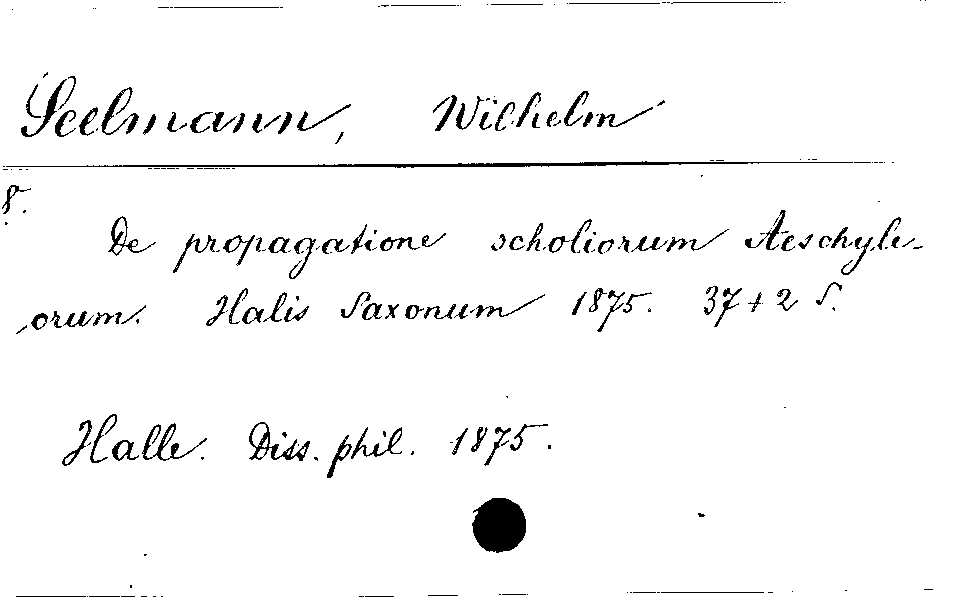 Seelmann, Wilhelm
8.
De propagatione scholiorum Aeschyle-
orum. Halis Saxonum 1875. 37+2 S.
Halle. Diss. phil. 1875.